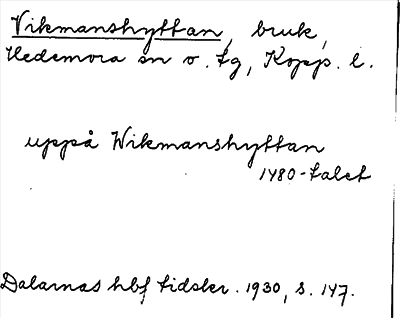 Vikmanshyttan, bruk,
Hedemora sn o. tg, Kopp. l.
uppå Wikmanshyttan
1480-talet
Dalarnas hbf tidskr. 1930, s. 147.